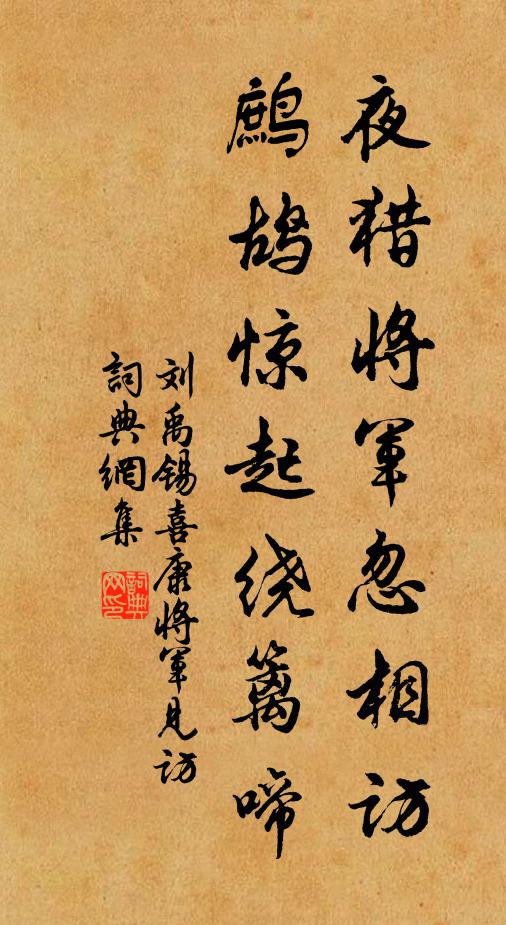 夜猎将军忽相访
鹧鸪惊起绕篱啼
刘禹锡喜康将军见访
词典網集
詞典
网印